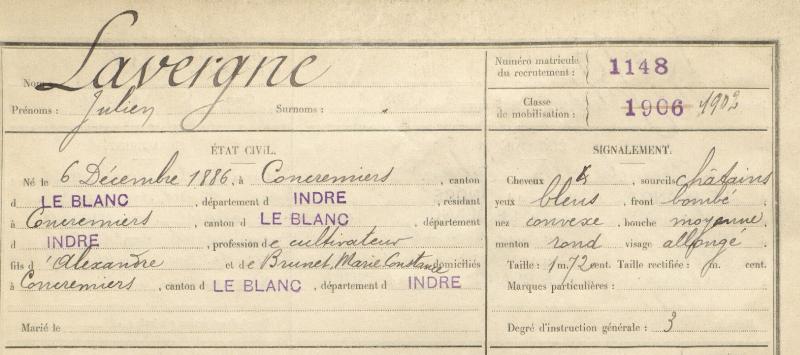 Nom Lavergne
Prénoms : Julien Surnoms : .
Numéro matricule du recrutement : 1148
Classe de mobilisation : 1906 1902
ÉTAT CIVIL.
Né le 6 Décembre 1886, à Concremiers, canton
d LE BLANC, département d INDRE, résidant
à Concremiers, canton d LE BLANC, département
d INDRE, profession de cultivateur
fils d'Alexandre et de Brunet, Marie Constance domiciliés
à Concremiers, canton d LE BLANC, département d INDRE
Marié le
SIGNALEMENT.
Cheveux et, sourcils châtains
yeux bleus, front bombé
nez convexe, bouche moyenne,
menton rond visage allongé.
Taille : 1 m. 72 cent. Taille rectifiée : m. cent.
Marques particulières :
Degré d'instruction générale : 3